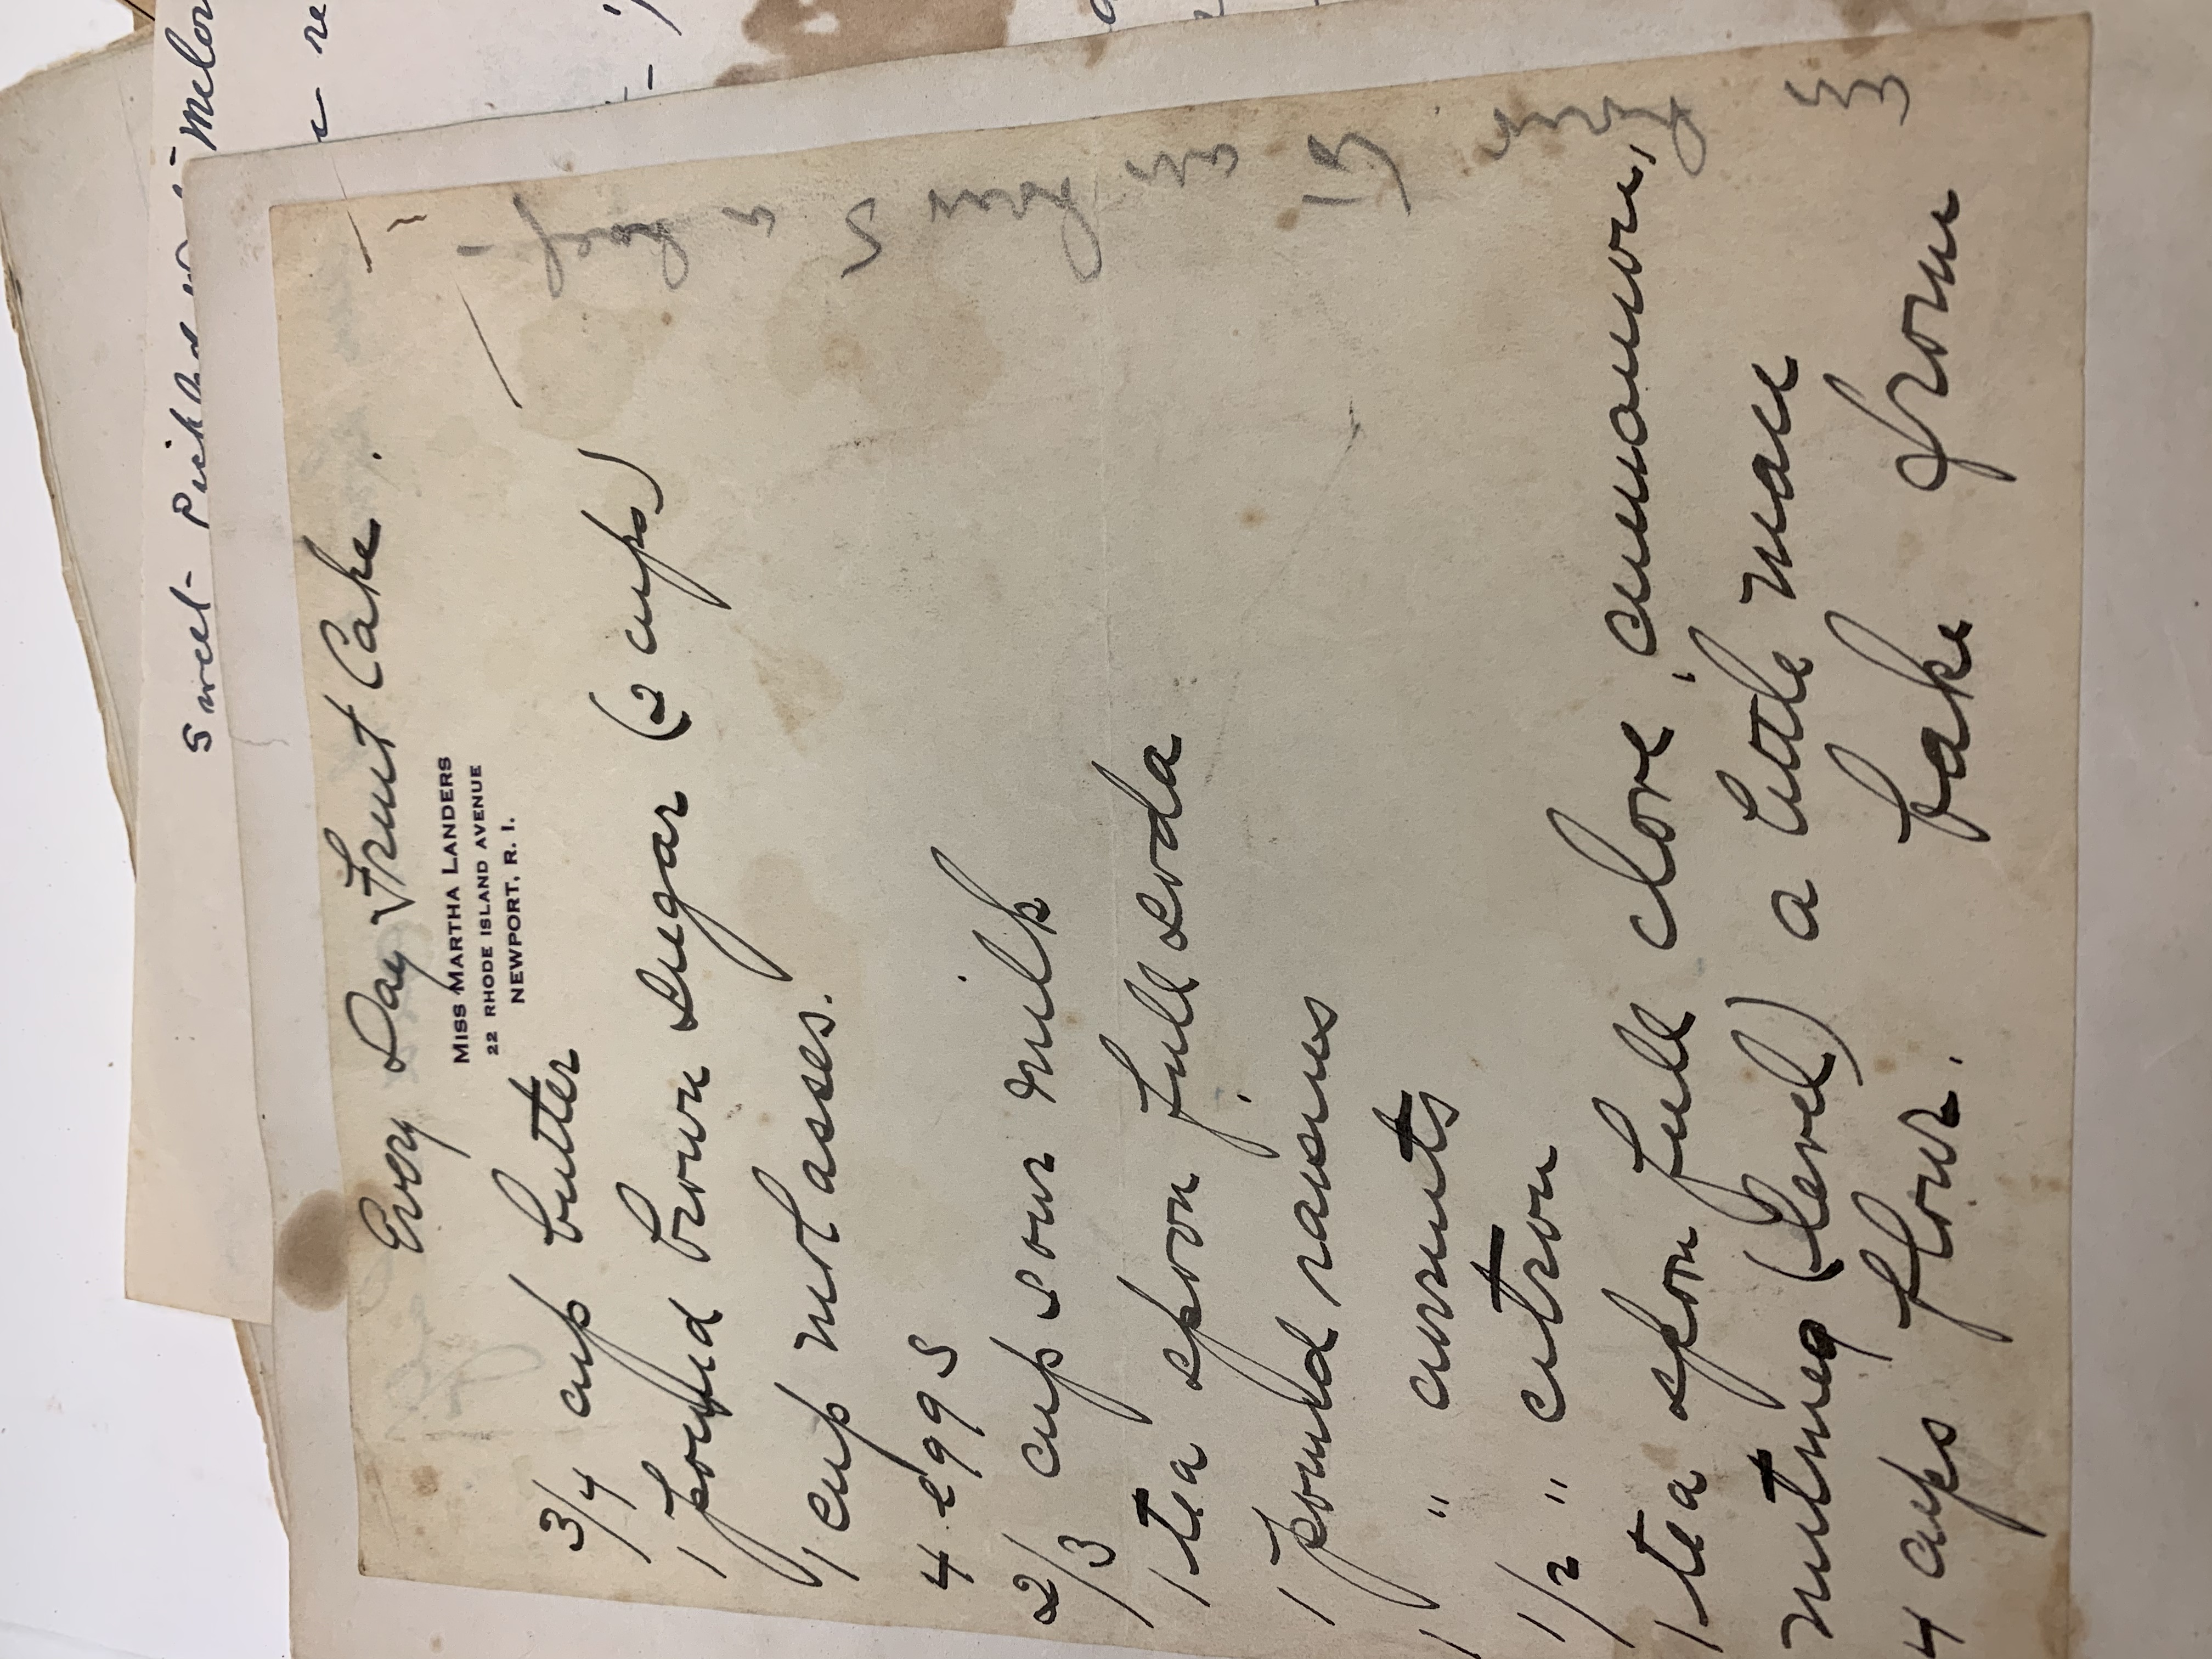 Sweet Pickled Melon
re
Every Day Fruit Cake.
MISS MARTHA LANDERS
22 RHODE ISLAND AVENUE
NEWPORT, R. I.
3/4 cup butter
1 pound brown sugar (2 cups)
1 cup molasses.
4 eggs
2/3 cup sour milk
1 tea spoon full soda
1 pound raisins
1 " currents
1/2 " citron
1 tea spoon full clove, cinnamon,
nutmeg (level) a little mace
4 cups flour. bake from